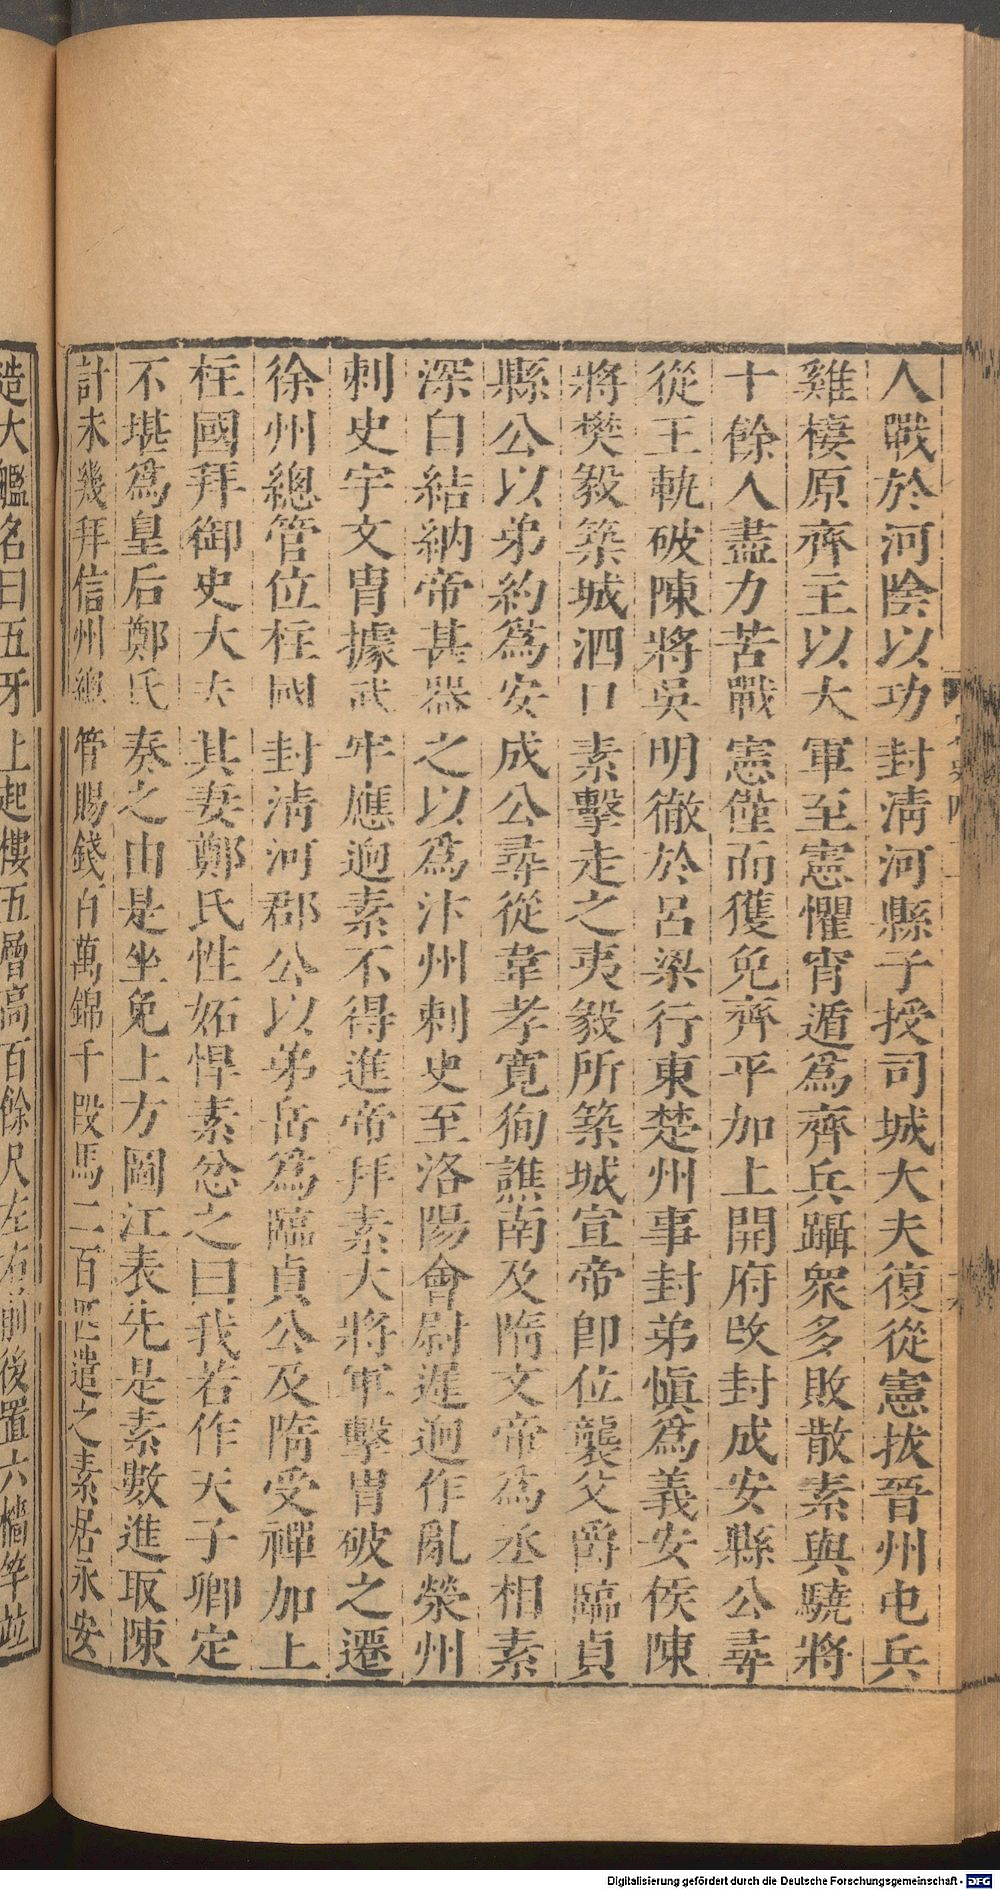 人戰於河陰以功封淸河縣子授司城大夫復從憲拔晉州屯兵
雞棲原齊主以大軍至憲懼宵遁爲齊兵躡衆多敗散素與驍將
十餘人盡力苦戰憲僅而獲免齊平加上開府改封成安縣公尋
從王軌破陳將吳明徹於呂梁行東楚州事封弟愼爲義安侯陳
將樊毅築城泗口素擊走之夷毅所築城宣帝卽位襲父爵臨貞
縣公以弟約爲安成公尋從韋孝寬徇譙南及隋文帝爲丞相素
深自結納帝甚器之以爲汴州刺史至洛陽會尉遲迥作亂滎州
刺史宇文胄據武牢應迥素不得進帝拜素大將軍擊胄破之遷
徐州總管位柱國封淸河郡公以弟岳爲臨貞公及隋受禪加上
柱國拜御史大夫其妻鄭氏性妬悍素忿之曰我若作天子卿定
不堪爲皇后鄭氏奏之由是坐免上方圖江表先是素數進取陳
計未幾拜信州總管賜錢百萬錦千段馬二百匹遣之素居永安
造大艦名曰五牙上起樓五層高百餘尺左右前後置六檣竿竝
Digitalisierung gefördert durch die Deutsche Forschungsgemeinschaft - DFG